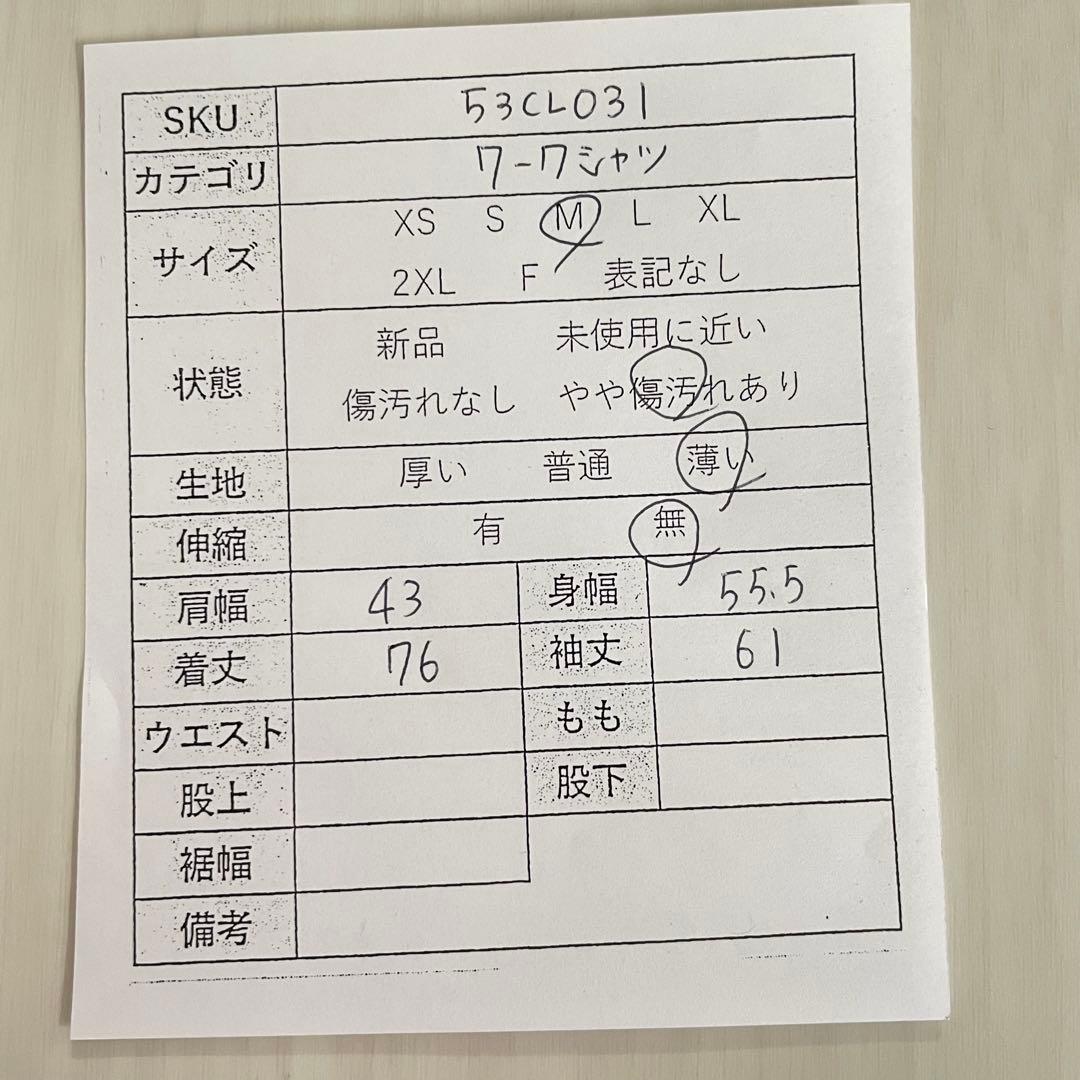 SKU 53CL031
カテゴリ ワークシャツ
サイズ XS S M L XL
2XL F 表記なし
状態 新品 未使用に近い
傷汚れなし やや傷汚れあり
生地 厚い 普通 薄い
伸縮 有 無
肩幅 43 身幅 55.5
着丈 76 袖丈 61
ウエスト もも
股上 股下
裾幅
備考